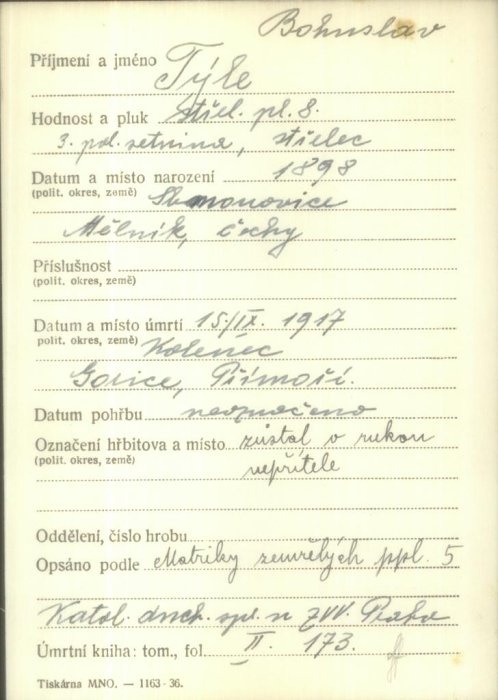 Bohuslav
Příjmení a jméno Týle
Hodnost a pluk střel. pl. 8.
3. pol. setnina, střelec
Datum a místo narození 1898
(polit. okres, země)
Mělník, Čechy
Příslušnost
(polit. okres, země)
Datum a místo úmrtí 15./IX. 1917
(polit. okres, země) Kolenec
Gorice, Přímoří.
Datum pohřbu neoznačeno
Označení hřbitova a místo zůstal v rukou
(polit. okres, země) nepřítele
Oddělení, číslo hrobu
Opsáno podle Matriky zemřelých ppl. 5
Katol. duch. spr. n ZVV. Praha
Úmrtní kniha: tom., fol. II. 173.
Tiskárna MNO. — 1163-36.